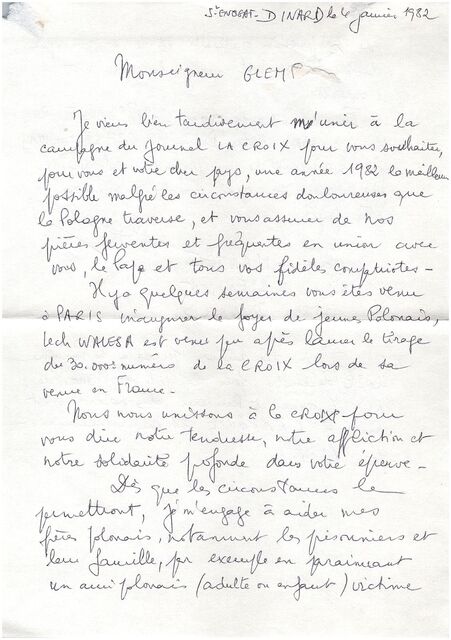 St-ENOGAT-DINARD le 4 janvier 1982
Monseigneur GLEMP
Je viens bien tardivement m'unir à la
campagne du journal LA CROIX pour vous souhaiter,
pour vous et votre cher pays, une année 1982 la meilleure
possible malgré les circonstances douloureuses que
la Pologne traverse, et vous assurer de nos
prières ferventes et fréquentes en union avec
vous, le Pape et tous vos fidèles compatriotes -
Il y a quelques semaines vous êtes venu
à PARIS inaugurer le foyer de jeunes Polonais,
Lech WALESA est venu peu après lancer le tirage
du 30.000e numéro de la CROIX lors de sa
venue en France -
Nous nous unissons à la CROIX pour
vous dire notre tendresse, notre affliction et
notre solidarité profonde dans votre épreuve -
Dès que les circonstances le
permettront, je m'engage à aider mes
frères polonais, notamment les prisonniers et
leur famille, par exemple en parrainant
un ami polonais (adulte ou enfant) victime